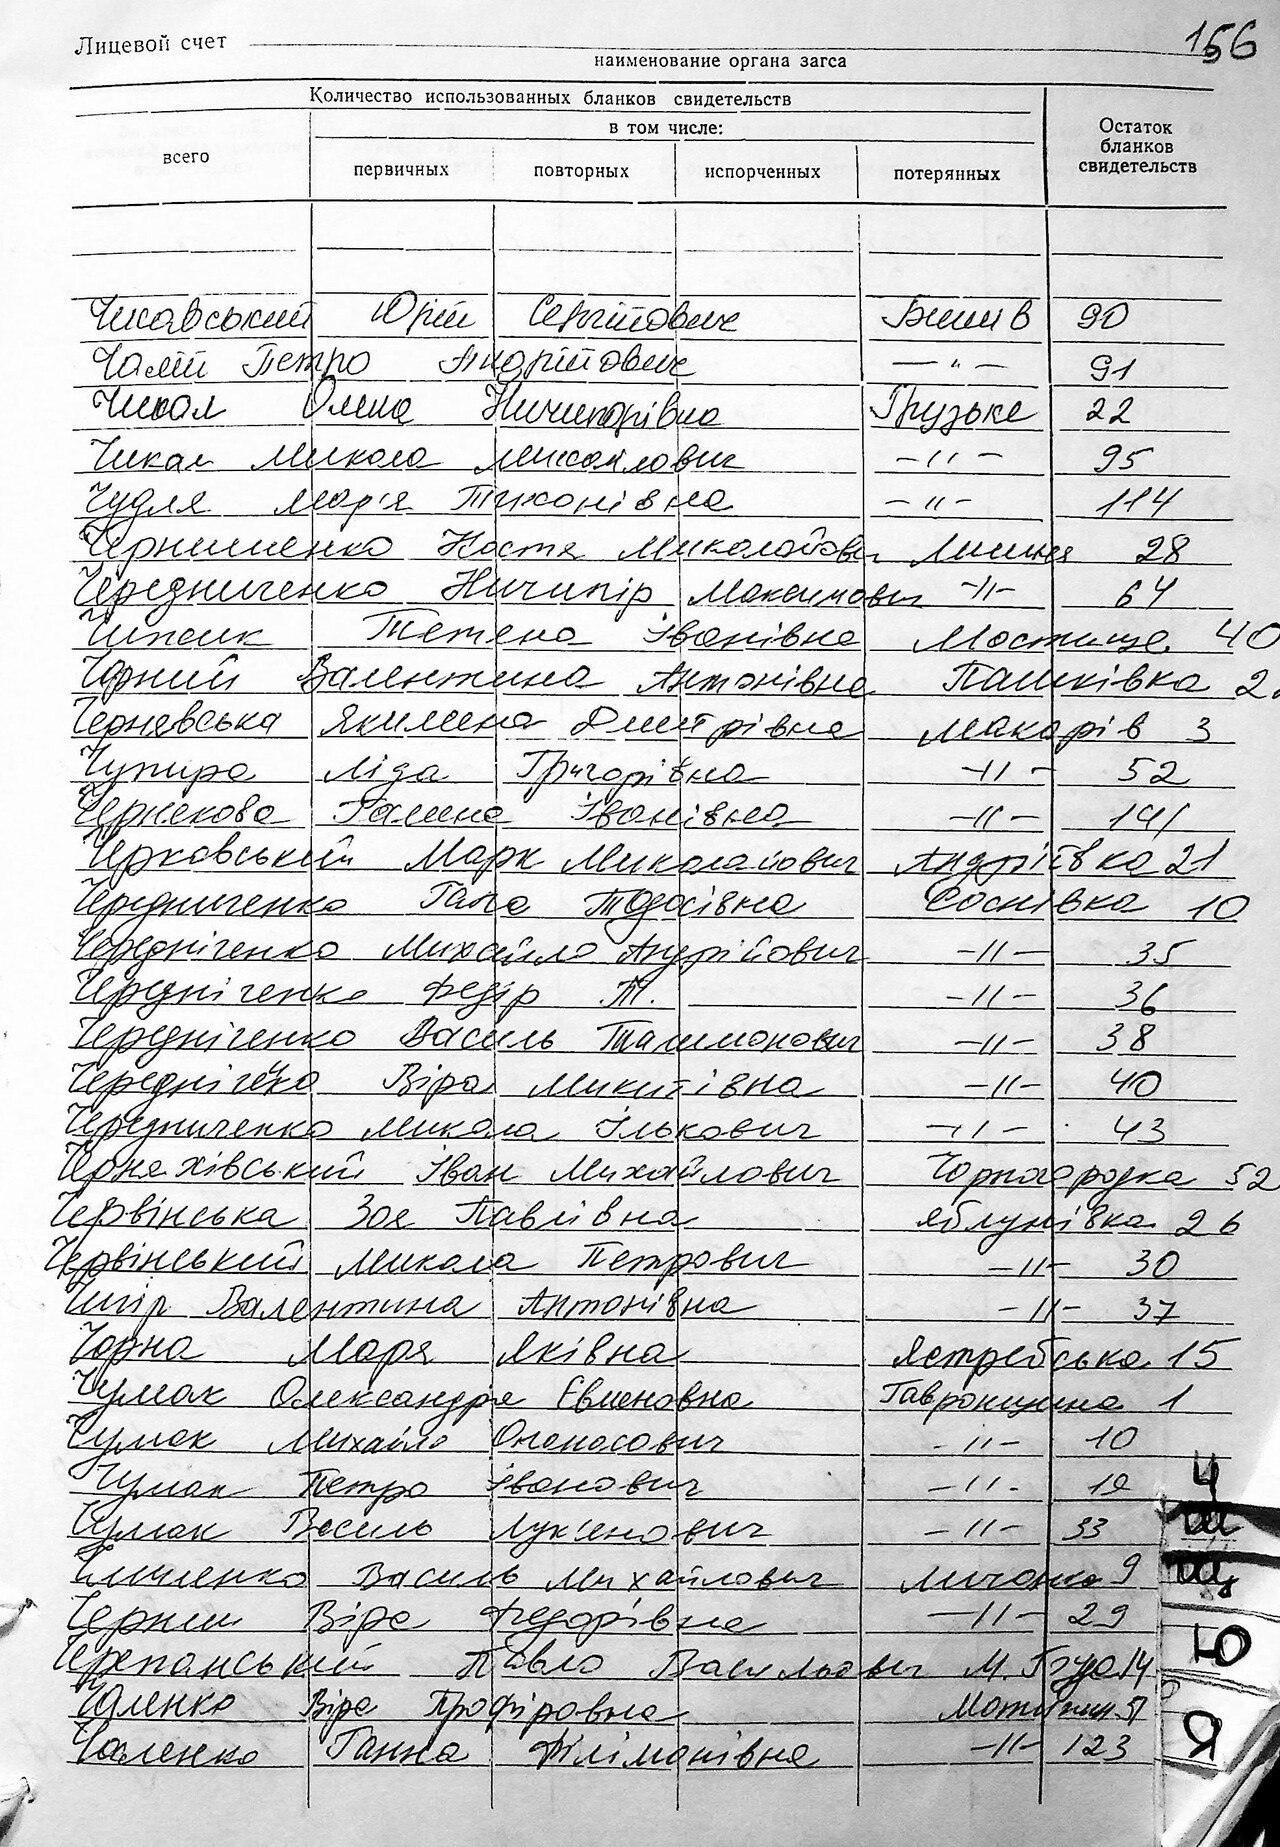 156
Лицевой счет
наименование органа загса
Количество использованных бланков свидетельств
в том числе:
всего первичных повторных испорченных потерянных Остаток бланков свидетельств
Чикавський Юрій Сергійович Бишів 90
Чалій Петро Андрійович —"— 91
Чикал Олена Ничипорівна Грузьке 22
Чикал Микола Михайлович —"— 95
Чудля Мар'я Тихонівна —"— 114
Чернишенко Костя Миколайович 28
Чередниченко Ничипір Максимович —"— 64
Чипсик Тетена Іванівна Мостище 40
Чорний Валентина Антонівна Пашківка
Чернявська Якилина Дмитрівна Макарів 3
Чупира Ліза Григорівна —"— 52
Чернякова Галина Іванівна —"— 141
Черковський Марк Миколайович Андріївка 21
Чередниченко Ганна Тодосівна Соснівка 10
Чередніченко Михайло Андрійович —"— 35
Чередніченко Федір Т. —"— 36
Чередніченко Василь Талимонович —"— 38
Чередніченко Віра Микитівна —"— 40
Чередниченко Микола Ількович —"— 43
Черняхівський Іван Михайлович Чорногородка 52
Червінська Зоя Павлівна Яблунівка 26
Червінський Микола Петрович —"— 30
Чигір Валентина Антонівна —"— 37
Чорна Маря Яківна Ястребська 15
Чумак Олександря Євменовна Гавронщина 1
Чумак Михайло Опанасович —"— 10
Чумак Петро Іванович —"— 19
Чумак Василь Лук'янович —"— 33
Василь Михайлович 9
Черниш Віра Федорівна —"— 29
Черепанський Павло Васильович М. 14
Чаленко Віра Профіровна Мотижин 51
Чаленко Ганна Філімонівна —"— 123
Ч
Ш
Щ
Ю
Я